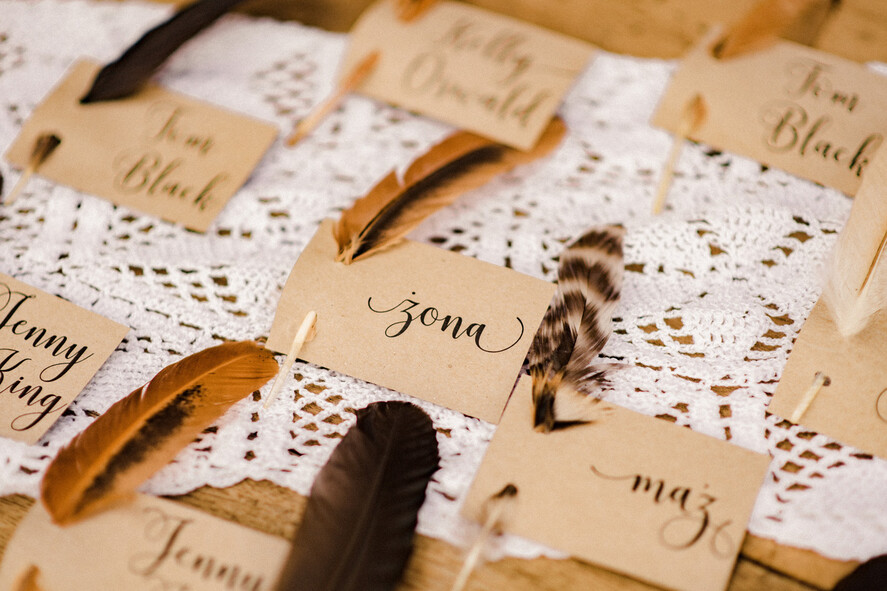 Kelly
Oswald
Tom
Black
Tom
Black
żona
Jenny
King
mąż
Jenny